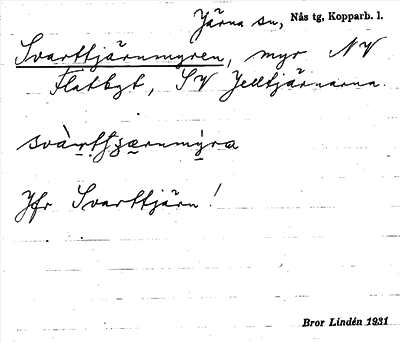 Järna sn, Nås tg, Kopparb. l.
Svarttjärnmyren, myr NV
Flatbyt, SV Jelltjärnarna.
Jfr Svarttjärn!
Bror Lindén 1931